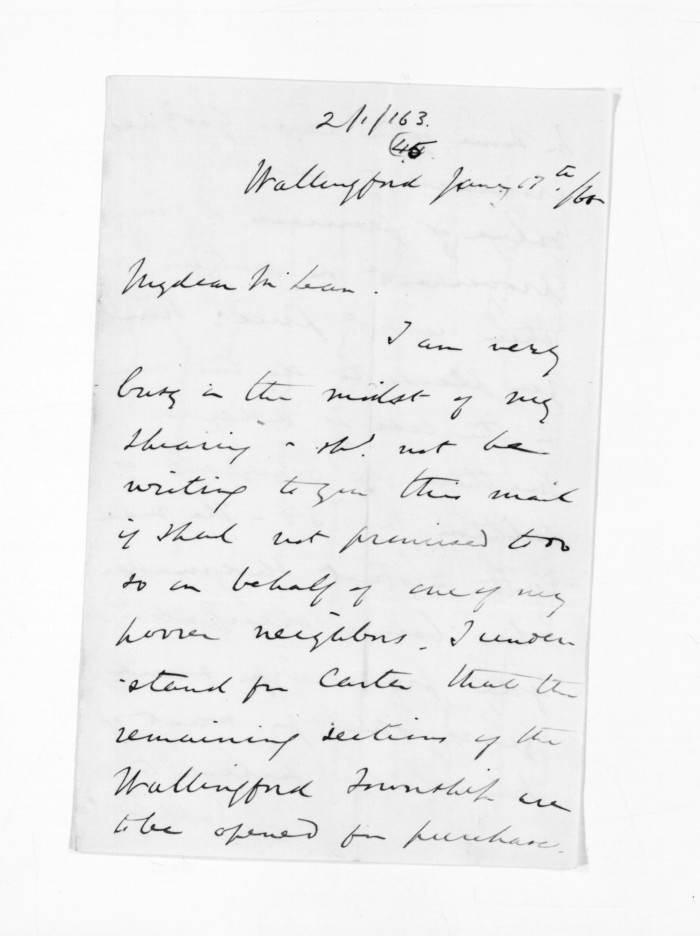 2/1/163.
45
Wallingford Jany 17th /60
My dear McLean.
I am very
busy in the midst of my
shearing & shd. not be
writing to you this mail
if I had not promised to do
so on behalf of one of my
poorer neighbors. I under
-stand fm Carter that the
remaining sections of the
Wallingford Township are
to be opened for purchase.